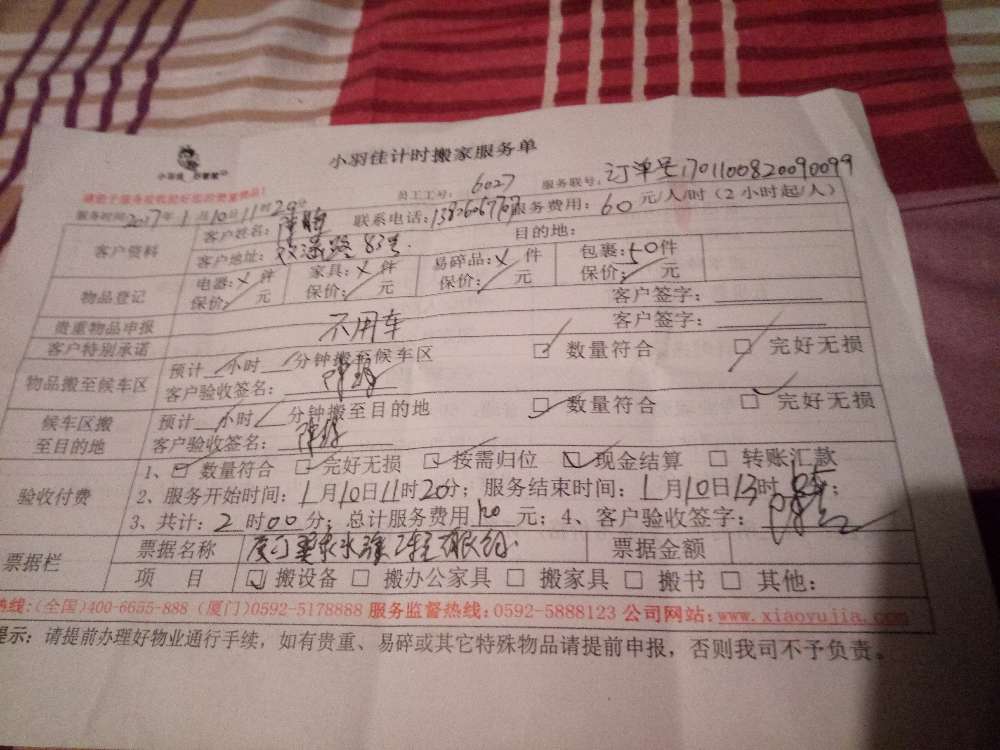 小羽佳计时搬家服务单
小羽佳
员工工号: 6027 服务联号: 订单号1701100820090099
服务时间2017年1月10日11时20分 联系电话: 服务费用: 60元/人/时 (2小时起/人)
客户资料 客户姓名: 目的地:
客户地址: 路83号
物品登记 电器: 件 家具: 件 易碎品: 件 包裹: 50件
保价: 元 保价: 元 保价: 元 保价: 元
贵重物品申报 客户签字:
客户特别承诺 不用车 客户签字:
物品搬至候车区 预计 小时 分钟搬至候车区 □ 数量符合 □ 完好无损
客户验收签名:
候车区搬至目的地 预计 小时 分钟搬至目的地 □ 数量符合 □ 完好无损
客户验收签名:
验收付费 1、□ 数量符合 □ 完好无损 □ 按需归位 □ 现金结算 □ 转账汇款
2、服务开始时间: 1月10日11时20分; 服务结束时间: 1月10日13时 ;
3、共计: 2时00分; 总计服务费用120元; 4、客户验收签字:
票据栏 票据名称 票据金额
项 目 □ 搬设备 □ 搬办公家具 □ 搬家具 □ 搬书 □ 其他:
热线: (全国)400-6655-888 (厦门)0592-5178888 服务监督热线: 0592-5888123 公司网站: www.xiaoyujia.com
提示: 请提前办理好物业通行手续, 如有贵重、易碎或其它特殊物品请提前申报, 否则我司不予负责。